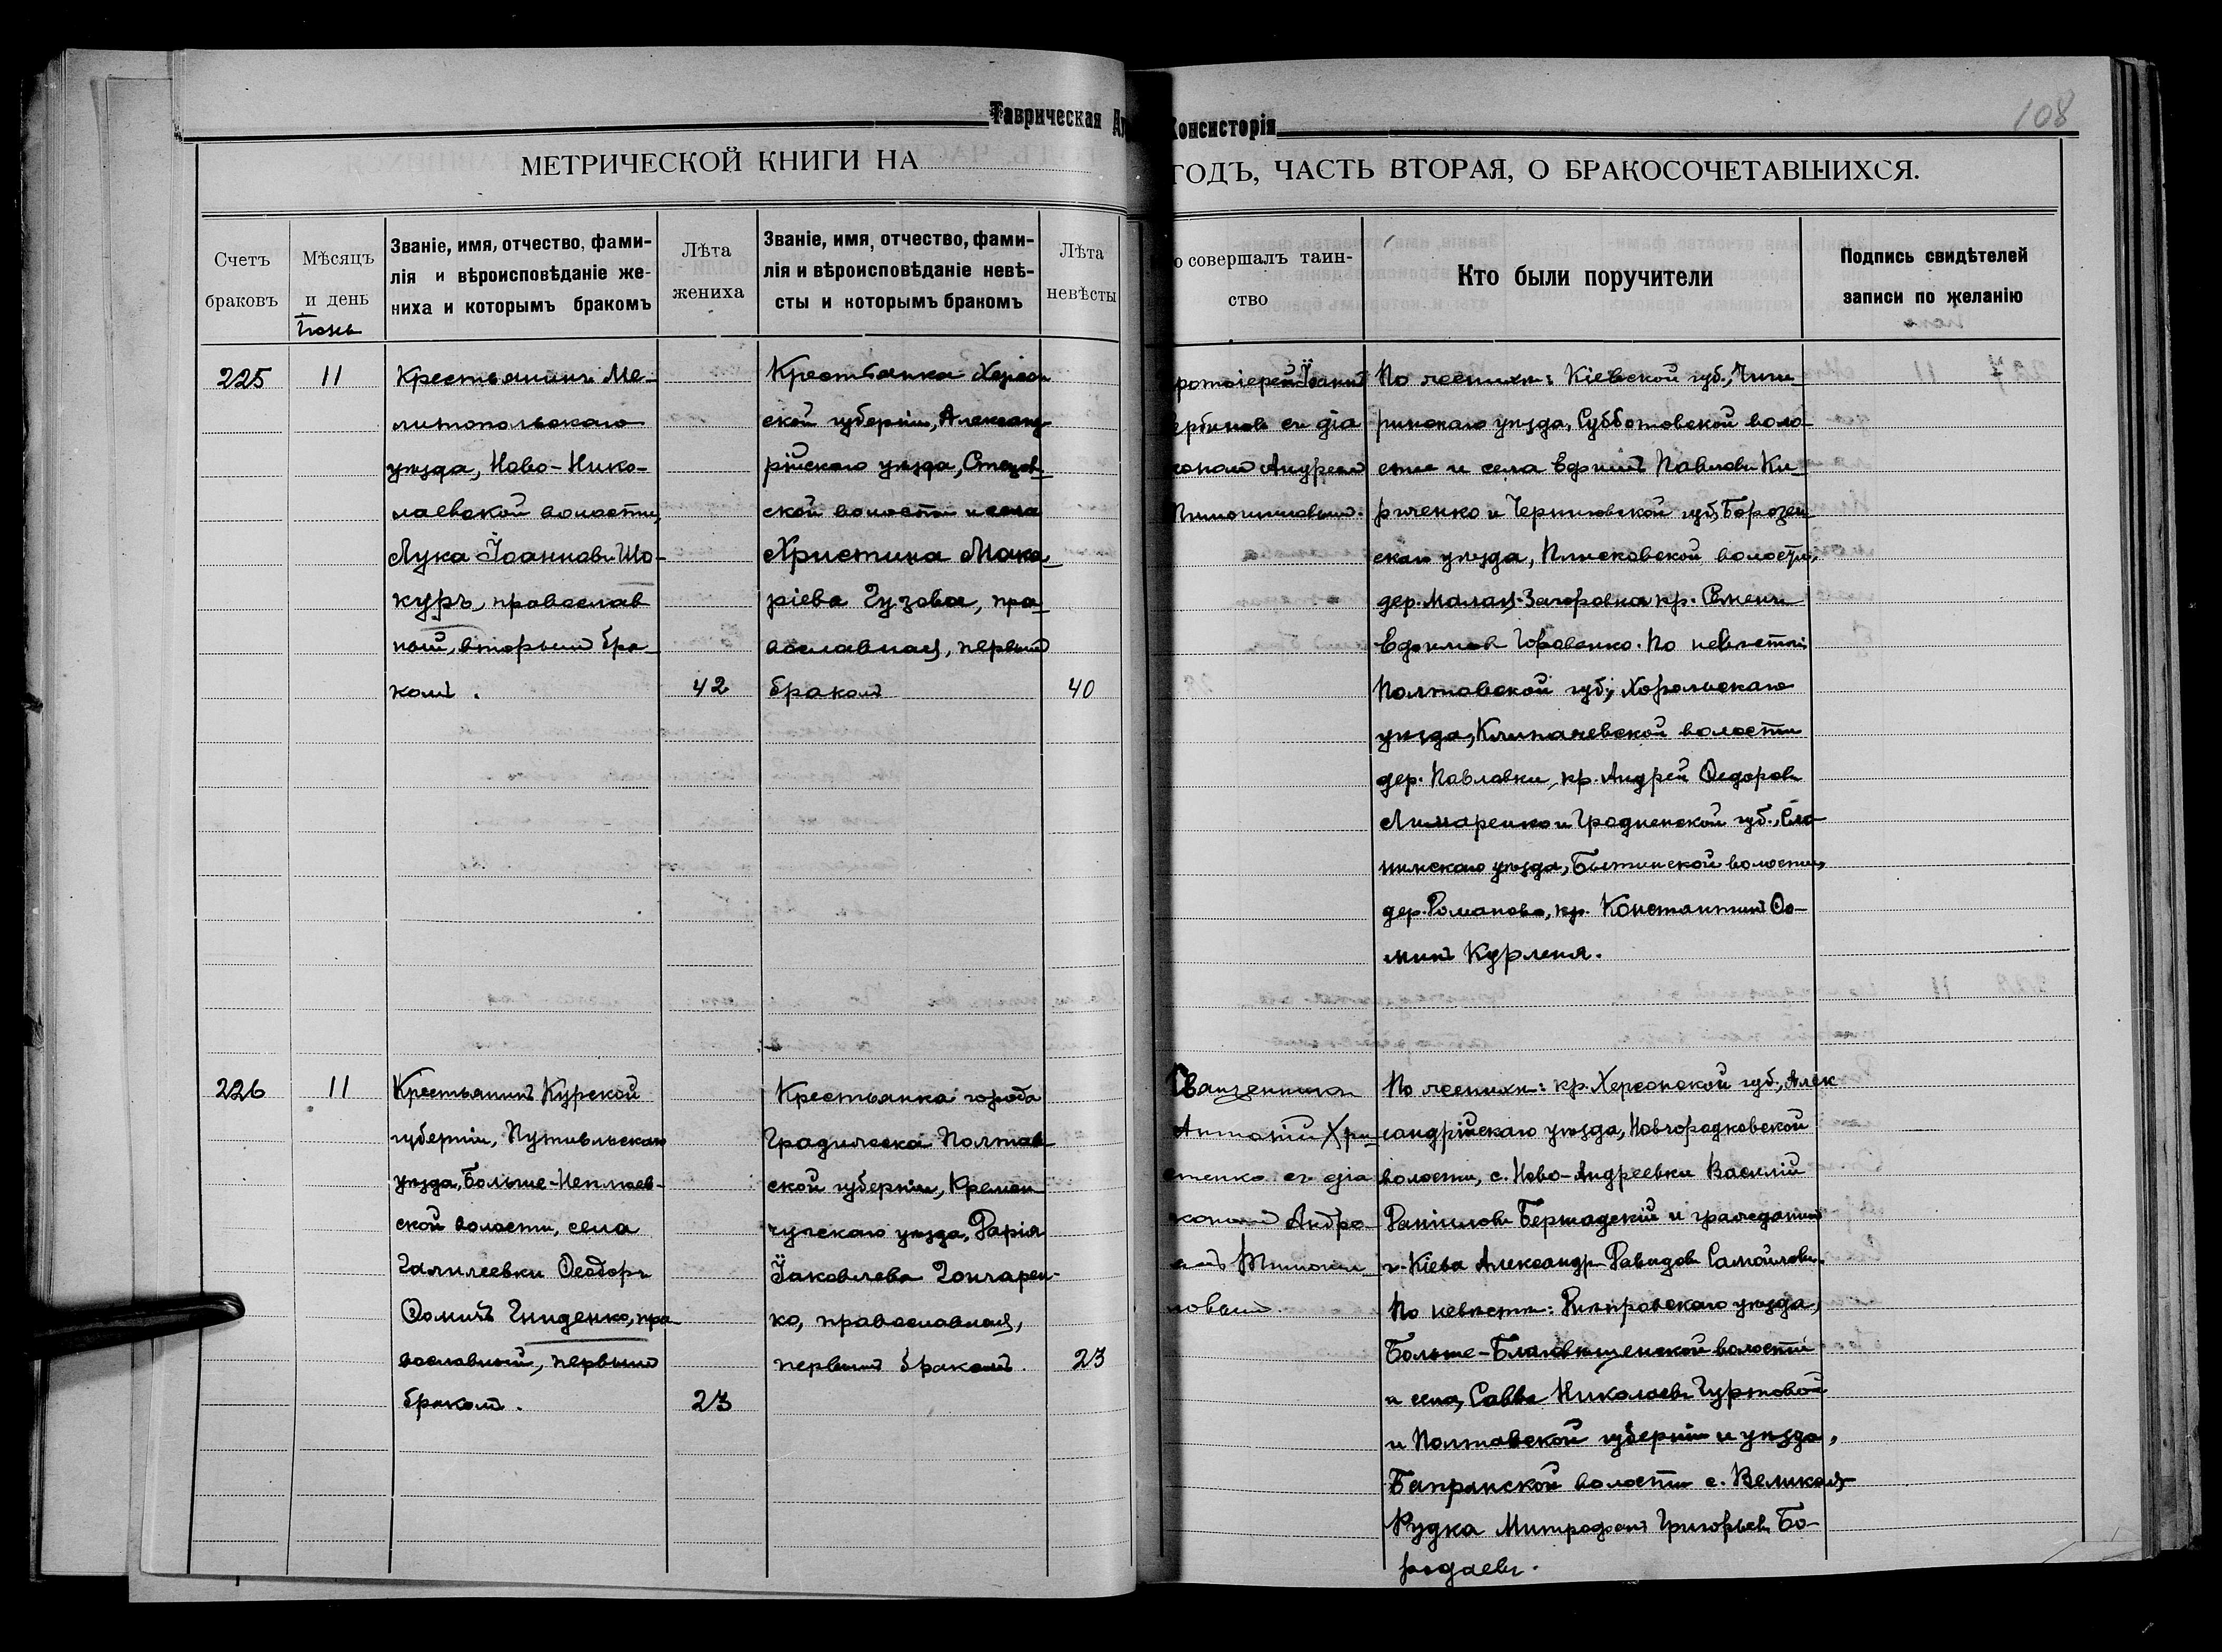 Таврическая
Консисторія
108
МЕТРИЧЕСКОЙ КНИГИ НА
ГОДЪ, ЧАСТЬ ВТОРАЯ, О БРАКОСОЧЕТАВШИХСЯ.
Счетъ
браковъ
Мѣсяцъ
и день
Іюнь
Званіе, имя, отчество, фами-
лія и вѣроисповѣданіе же-
ниха и которымъ бракомъ
Лѣта
жениха
Званіе, имя, отчество, фами-
лія и вѣроисповѣданіе невѣ-
сты и которымъ бракомъ
Лѣта
невѣсты
о совершалъ таин-
ство
Кто были поручители
Подпись свидѣтелей
записи по желанію
225
11
Крестьянинъ Ме-
литопольскаго
уѣзда, Ново-Нико-
лаевской волости,
Лука Іоанновъ Шо-
куръ, православ
ный, вторымъ бра-
комъ.
42
Крестьянка Херсон
ской губерніи, Александ-
рійскаго уѣзда,
ской волости и села
Христина Мака-
ріева Гузова, пра-
вославная, первымъ
бракомъ
40
ротоіерей Іоаннъ
ербиновъ съ діа
кономъ Андреемъ
По женихѣ: Кіевской губ., Чиги-
ринскаго уѣзда, Субботовской воло-
сти и села Ефимъ Павловъ Ки-
риченко и Черниговской губ., Борозен
скаго уѣзда, Плисковской волости,
дер. Малая-Загоровка кр. Семенъ
Ефимовъ. По невѣстѣ:
Полтавской губ., Хорольскаго
уѣзда, волости
дер. Павловки, кр. Андрей Ѳедоровъ
Лимаренко и Гродненской губ., Сло-
нимскаго уѣзда, Бытенской волости,
дер. Романово, кр. Константинъ Ѳо-
минъ Курленя.
226
11
Крестьянинъ Курской
губерніи, Путивльскаго
уѣзда, Больше-Неплюев-
ской волости, села
Галилеевки Ѳеодоръ
Ѳоминъ Гниденко, пра-
вославный, первымъ
бракомъ.
23
Крестьянка города
Градижска Полтав-
ской губерніи, Кремен-
чугскаго уѣзда, Дарія
Іаковлева Гончарен-
ко, православная,
первымъ бракомъ.
23
Священникъ
Антоній Хри-
стенко съ діа
кономъ Андре-
емъ Тимоши-
новымъ.
По женихѣ: кр. Херсонской губ., Алек
сандрійскаго уѣзда, Новгородковской
волости, с. Ново-Андреевки Василій
Даніиловъ Бершадскій и гражданинъ
г. Кіева Александръ Давидовъ Самойловъ.
По невѣстѣ: Днѣпровскаго уѣзда,
Больше-Благовѣщенской волости
и села, Савва Николаевъ Гуртовой
и Полтавской губерніи и уѣзда,
волости с. Великая
Рудка Митрофанъ Григорьевъ Бо-
родаевъ.